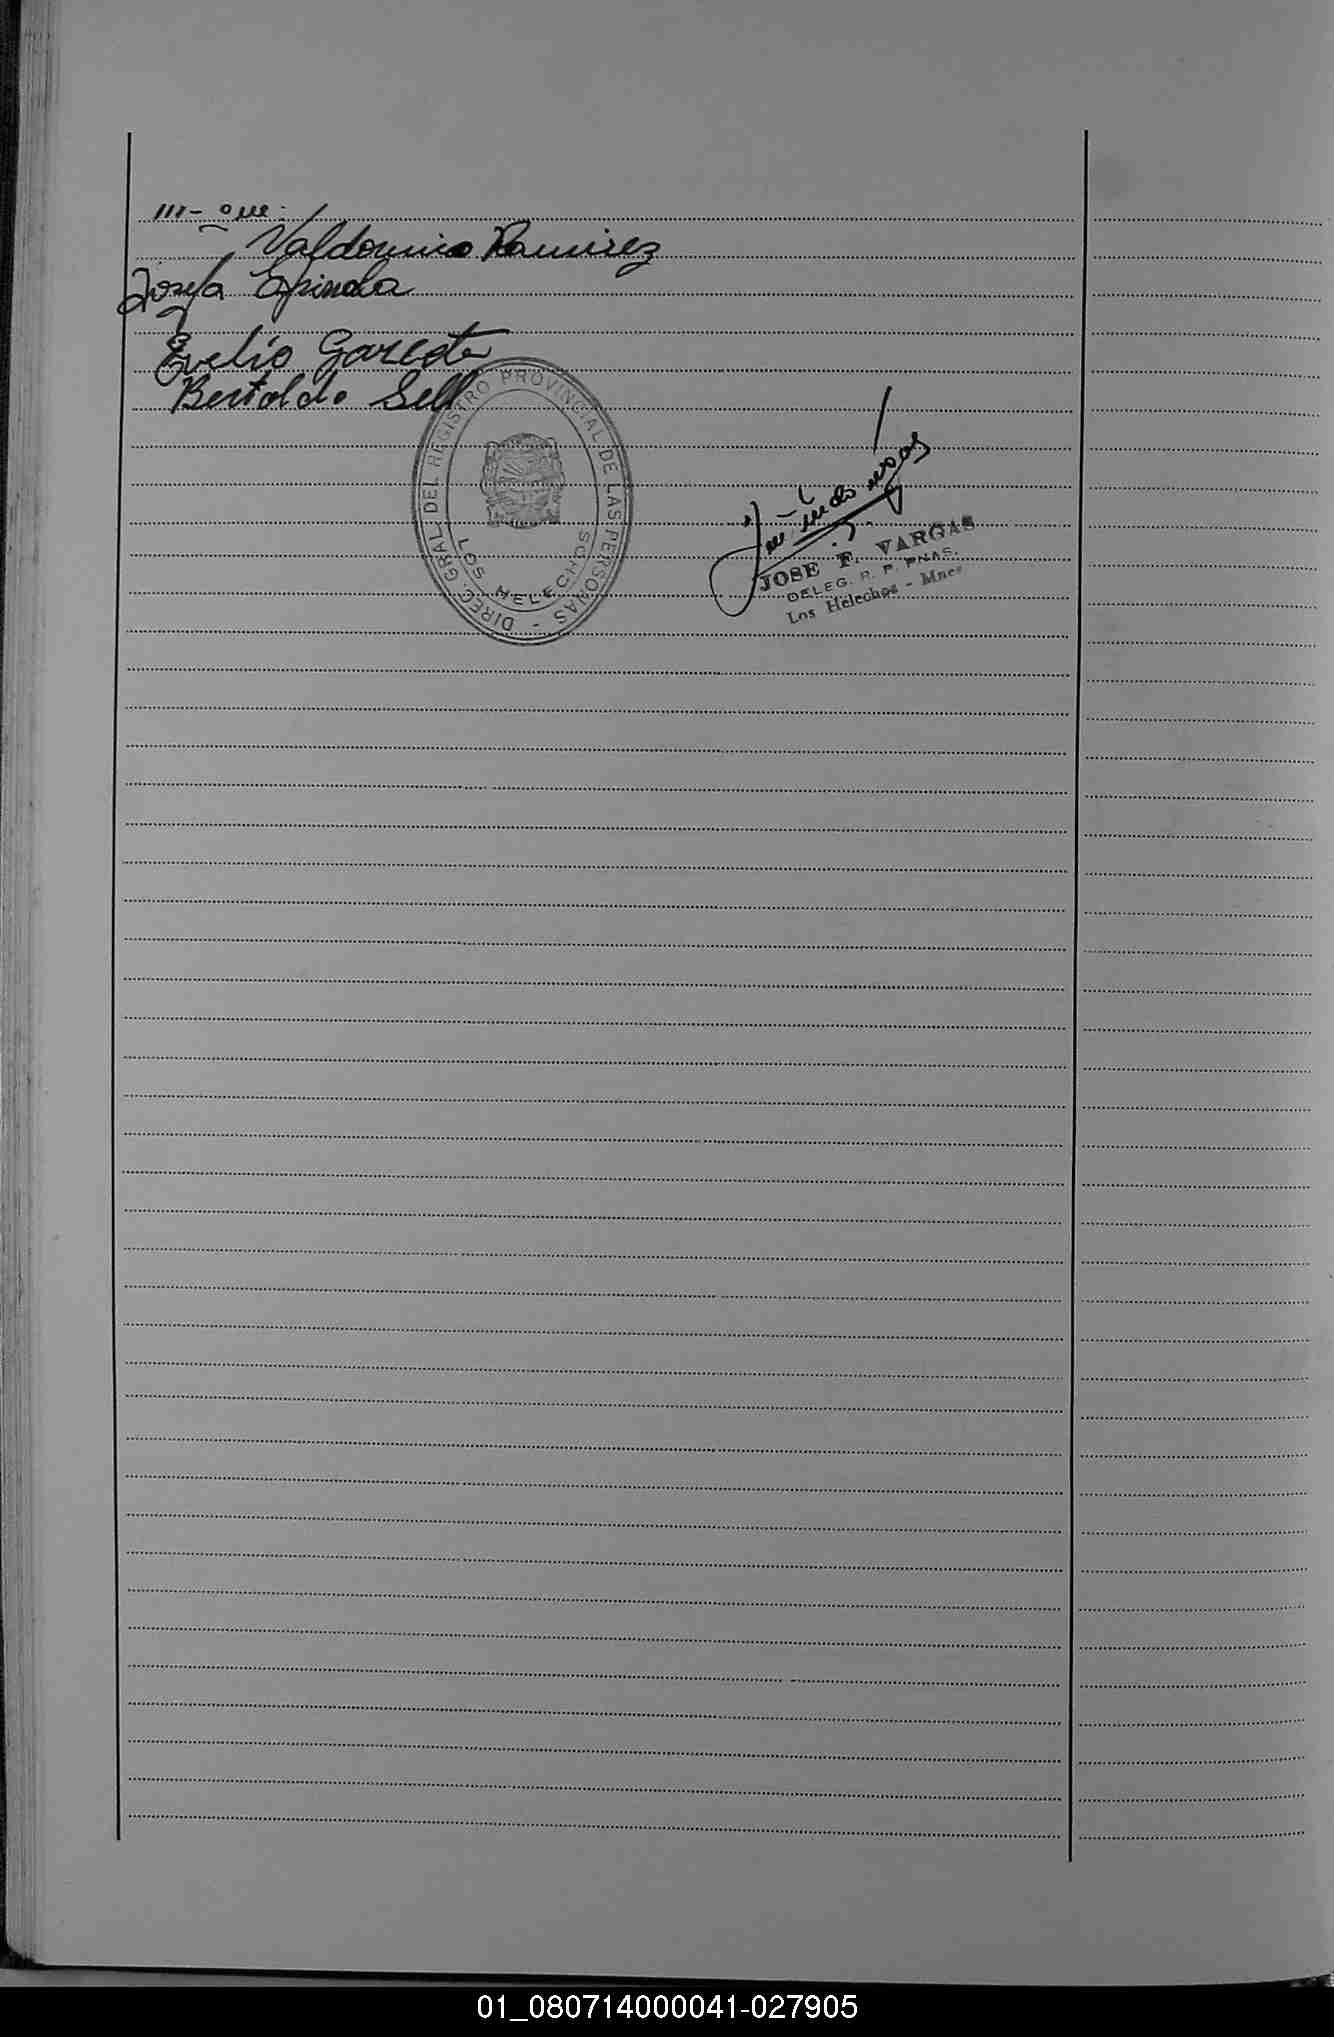 ///- que:
Valdomiro Ramirez
Josefa Espindola
Evelio
Bertoldo Sell
DIREC. GRAL. DEL REGISTRO PROVINCIAL DE LAS PERSONAS -
LOS HELECHOS
JOSE F. VARGAS
DELEG. R. P. PNAS.
Los Helechos - Mnes
01_080714000041-027905